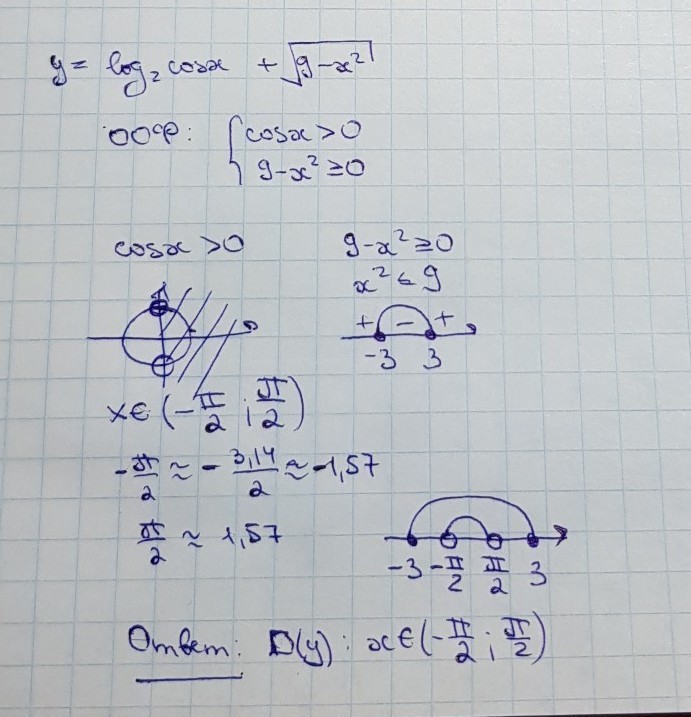 y = log₂ cosx + √(9-x²)
ООФ: { cosx > 0
9-x² ≥ 0
cosx > 0
9-x² ≥ 0
x² ≤ 9
+ - +
-3 3
x∈(-π/2 ; π/2)
-π/2 ≈ -3,14/2 ≈ -1,57
π/2 ≈ 1,57
-3 -π/2 π/2 3
Ответ: D(y): x∈(-π/2 ; π/2)